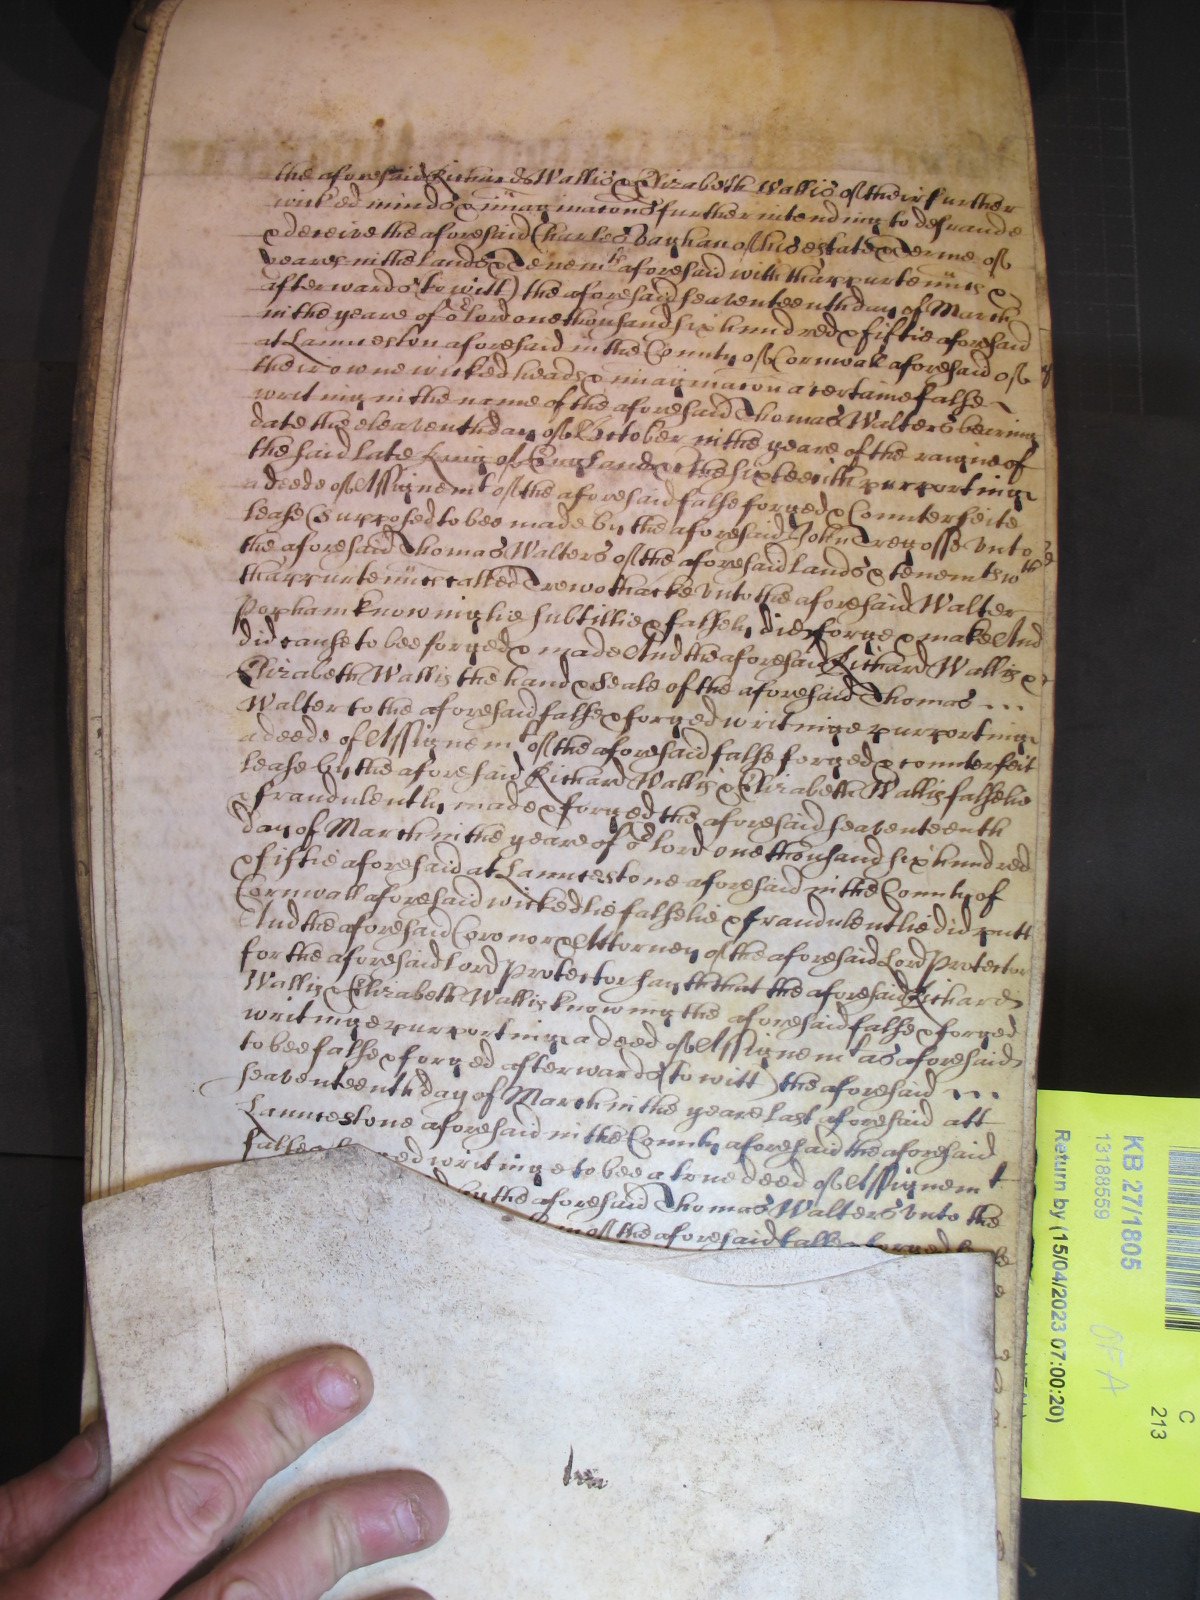 the aforesaid Richard Wallis & Elizabeth Wallis of their further
wicked minds & imaginacons further intending to defraude
& deceive the aforesaid Charles Vaghan of his estate & Terme of
yeares in the lands & Tenemts aforesaid with thappurtenncs &
afterwards (to witt) the aforesaid seaventeenth day of March
in the yeare of or Lord one thousand six hundred & fiftie aforesaid
at Launceston aforesaid in the County of Cornwall aforesaid of
their owne wicked heads & imaginacon a certaine false
writing in the name of the aforesaid Thomas Walters bearing
date the eleaventh day of October in the yeare of the raigne of
the said late King of England &c the sixteenth purporting
a deede of Assignemt of the aforesaid false forged & Counterfeite
lease (Supposed to bee made by the aforesaid John Tregosse unto
the aforesaid Thomas Walters of the aforesaid lands & tenemts wth
thappurtenncs called Trewothacke unto the aforesaid Walter
Popham knowinglie subtillie & falsely did forge & make And
did cause to bee forged & made And the aforesaid Richard Wallis &
Elizabeth Wallis the hand & Seale of the aforesaid Thomas
Walter to the aforesaid false & forged writinge purporting
a deede of Assignemt of the aforesaid false forged & counterfeit
lease by the aforesaid Richard Wallis & Elizabeth Wallis falselie
& fraudulently made & forged the aforesaid seaventeenth
day of March in the yeare of or Lord one thousand six hundred
& fiftie aforesaid at Launcestone aforesaid in the County of
Cornwall aforesaid wickedlie falselie & fraudulentlie did putt
And the aforesaid Coronor & Attorney of the aforesaid Lord Protector
for the aforesaid Lord Protector sayth that the aforesaid Richard
Wallis & Elizabeth Wallis knowing the aforesaid false & forged
writinge purporting a deed of Assignemt as aforesaid
to bee false & forged afterwards (to witt) the aforesaid
seaventeenth day of March in the yeare last aforesaid att
Launcestone aforesaid in the County aforesaid the aforesaid
false writinge to bee a true deed of Assignemt
by the aforesaid Thomas Walters unto the
of the aforesaid false forged
KB 27/1805
13188559
Return by (15/04/2023 07:00:20)
C
213